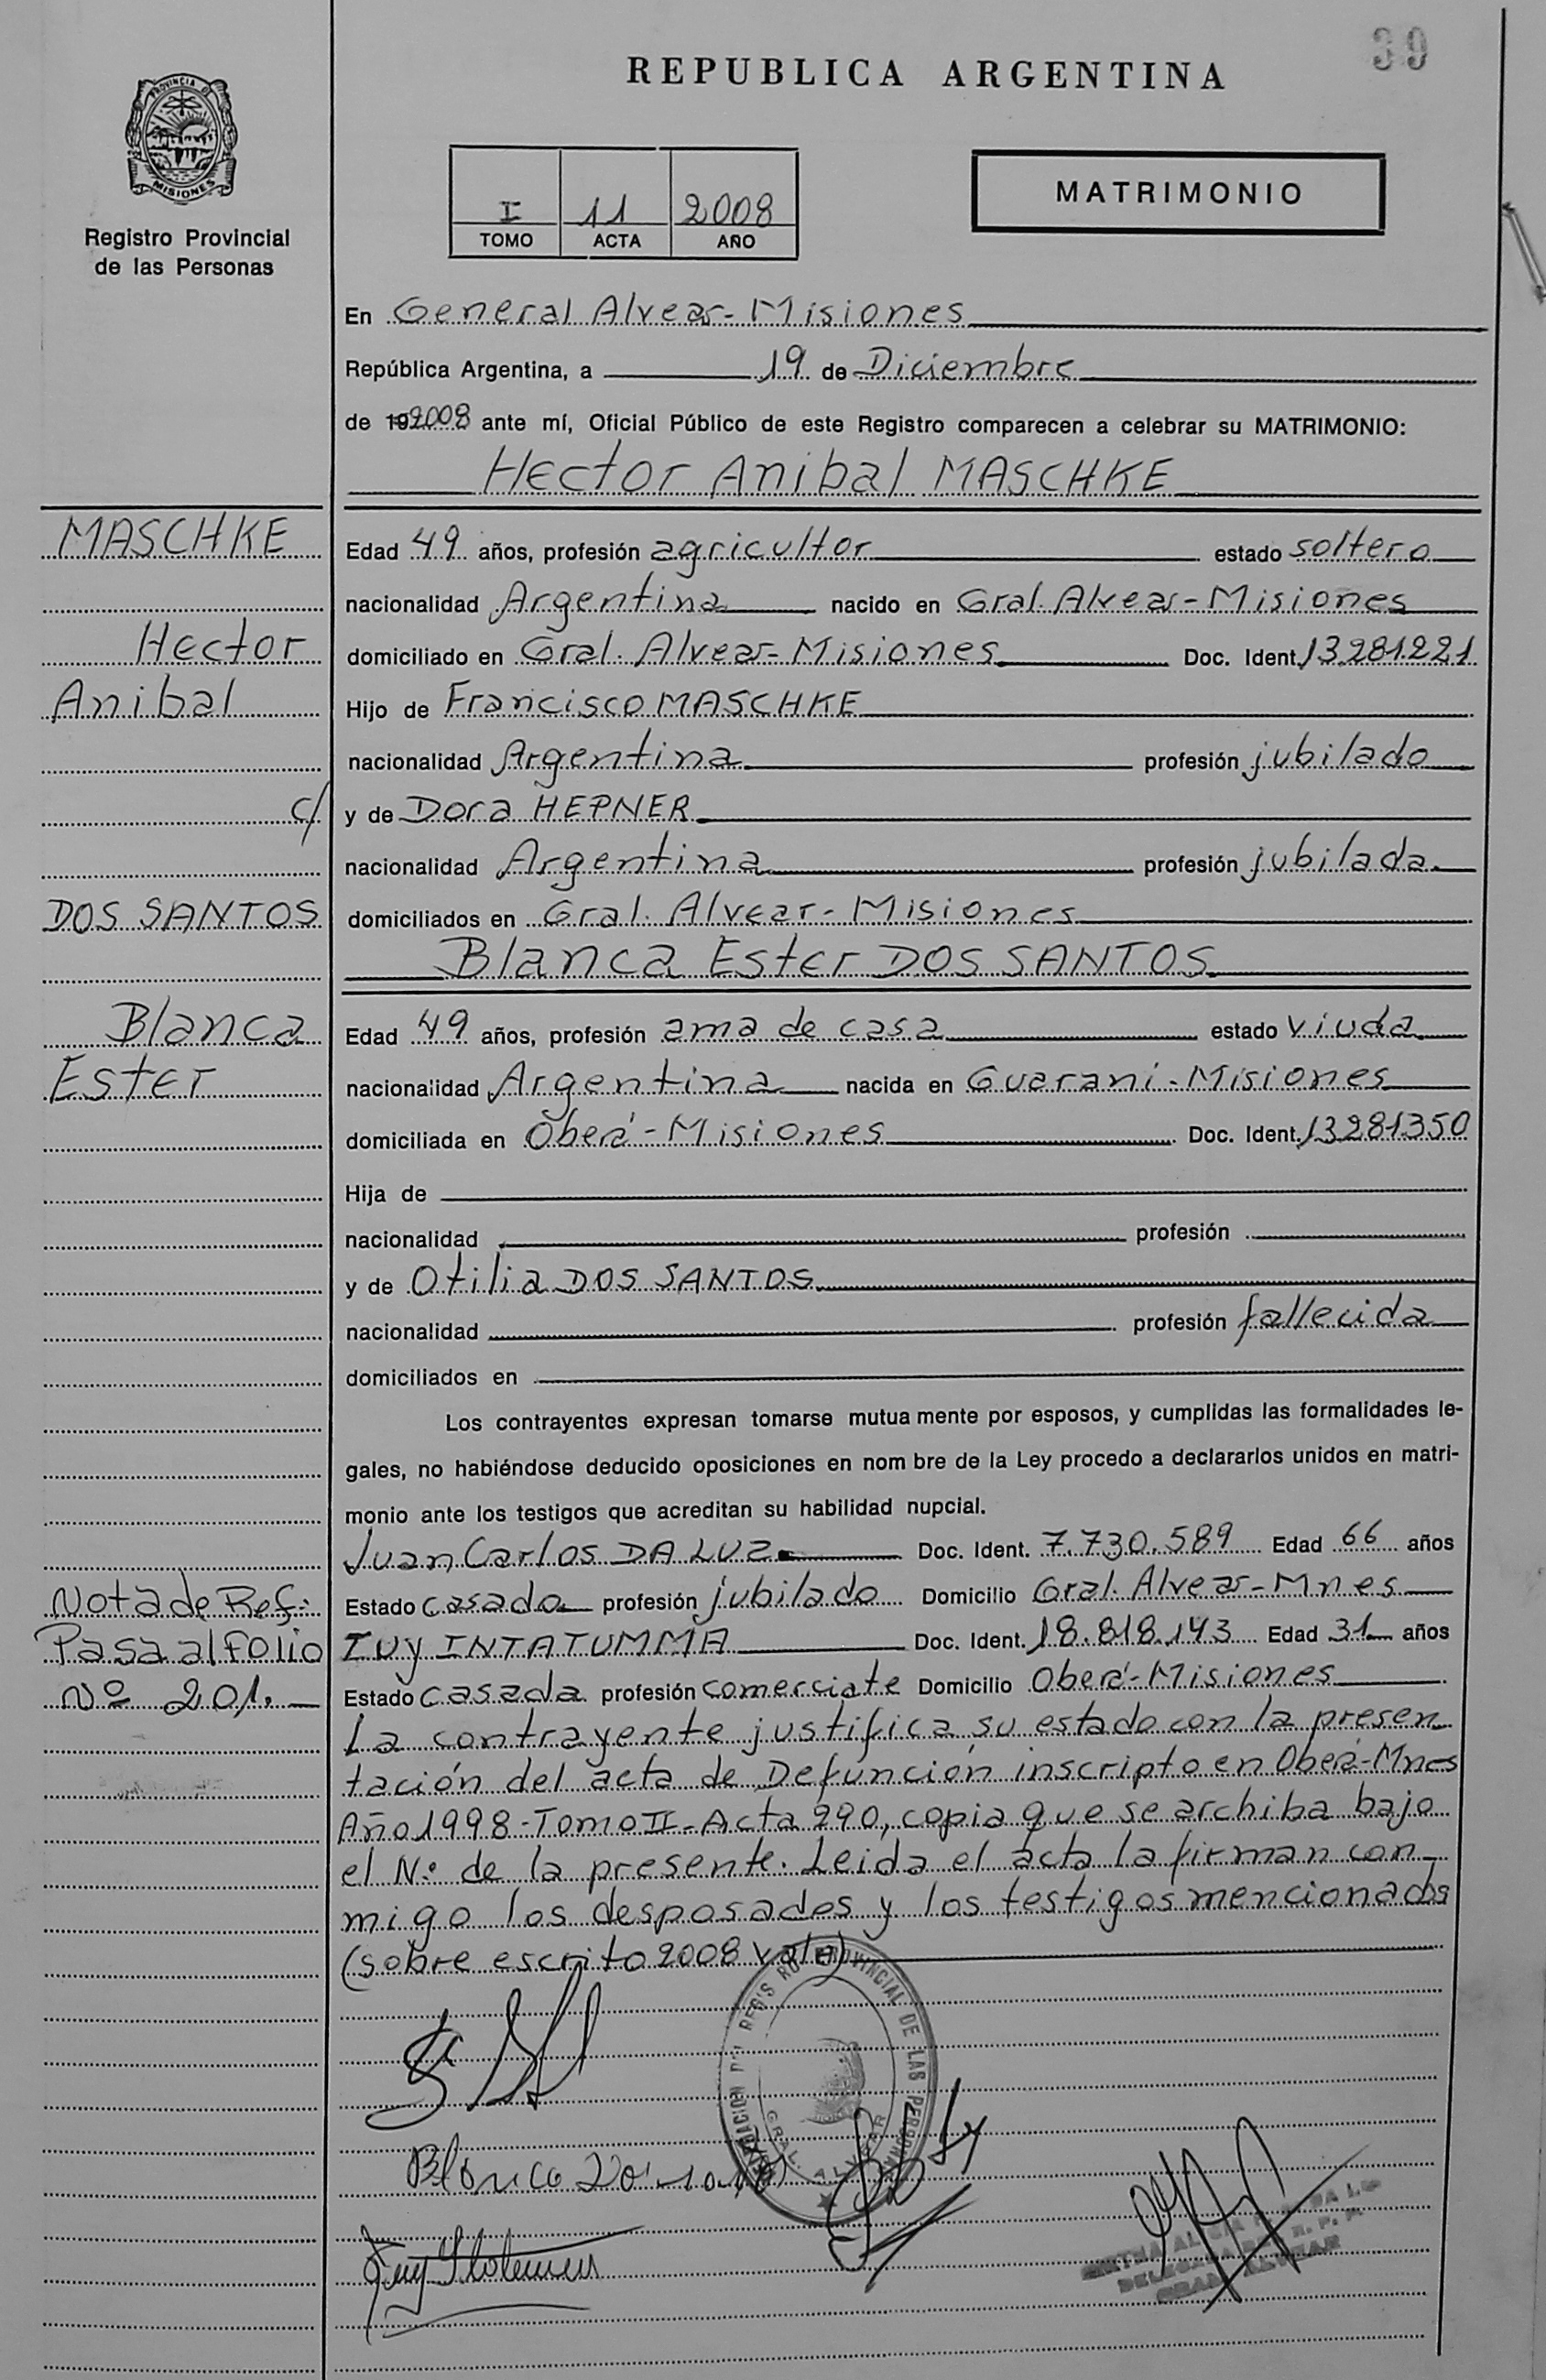 39
REPUBLICA ARGENTINA
PROVINCIA DE
MISIONES
Registro Provincial
de las Personas
I 11 2008
TOMO ACTA AÑO
MATRIMONIO
En General Alvear-Misiones
República Argentina, a 19 de Diciembre
de 192008 ante mí, Oficial Público de este Registro comparecen a celebrar su MATRIMONIO:
Hector Anibal MASCHKE
MASCHKE
Edad 49 años, profesión agricultor estado soltero
nacionalidad Argentina nacido en Gral. Alvear-Misiones
Hector
domiciliado en Gral. Alvear-Misiones Doc. Ident. 13281221
Anibal
Hijo de Francisco MASCHKE
nacionalidad Argentina profesión jubilado
c/
y de Dora HEPNER
nacionalidad Argentina profesión jubilada
DOS SANTOS
domiciliados en Gral. Alvear-Misiones
Blanca Ester DOS SANTOS
Blanca
Edad 49 años, profesión ama de casa estado viuda
Ester
nacionalidad Argentina nacida en Guaraní-Misiones
domiciliada en Oberá-Misiones Doc. Ident. 13281350
Hija de
nacionalidad profesión
y de Otilia DOS SANTOS
nacionalidad profesión fallecida
domiciliados en
Los contrayentes expresan tomarse mutua mente por esposos, y cumplidas las formalidades le-
gales, no habiéndose deducido oposiciones en nom bre de la Ley procedo a declararlos unidos en matri-
monio ante los testigos que acreditan su habilidad nupcial.
Juan Carlos DA LUZ Doc. Ident. 7.730.589 Edad 66 años
Nota de Ref:
Estado casado profesión jubilado Domicilio Gral. Alvear-Mnes
Pasa al Folio
IUy INTATUMMA Doc. Ident. 18.818.143 Edad 31 años
Nº 201.
Estado casada profesión comerciate Domicilio Oberá-Misiones
La contrayente justifica su estado con la presen
tación del acta de Defunción inscripto en Oberá-Mnes
Año 1998-Tomo II-Acta 290, copia que se archiba bajo
el Nº de la presente. Leida el acta la firman con-
migo los desposados y los testigos mencionados
(sobre escrito 2008 vale)
REGISTRO PROVINCIAL DE LAS PERSONAS
GRAL. ALVEAR